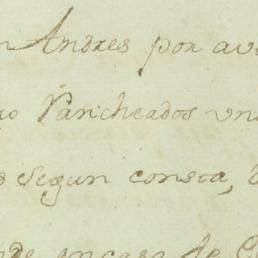 n Andres por av
ro Rancheados un
s segun consta,
en casa de C